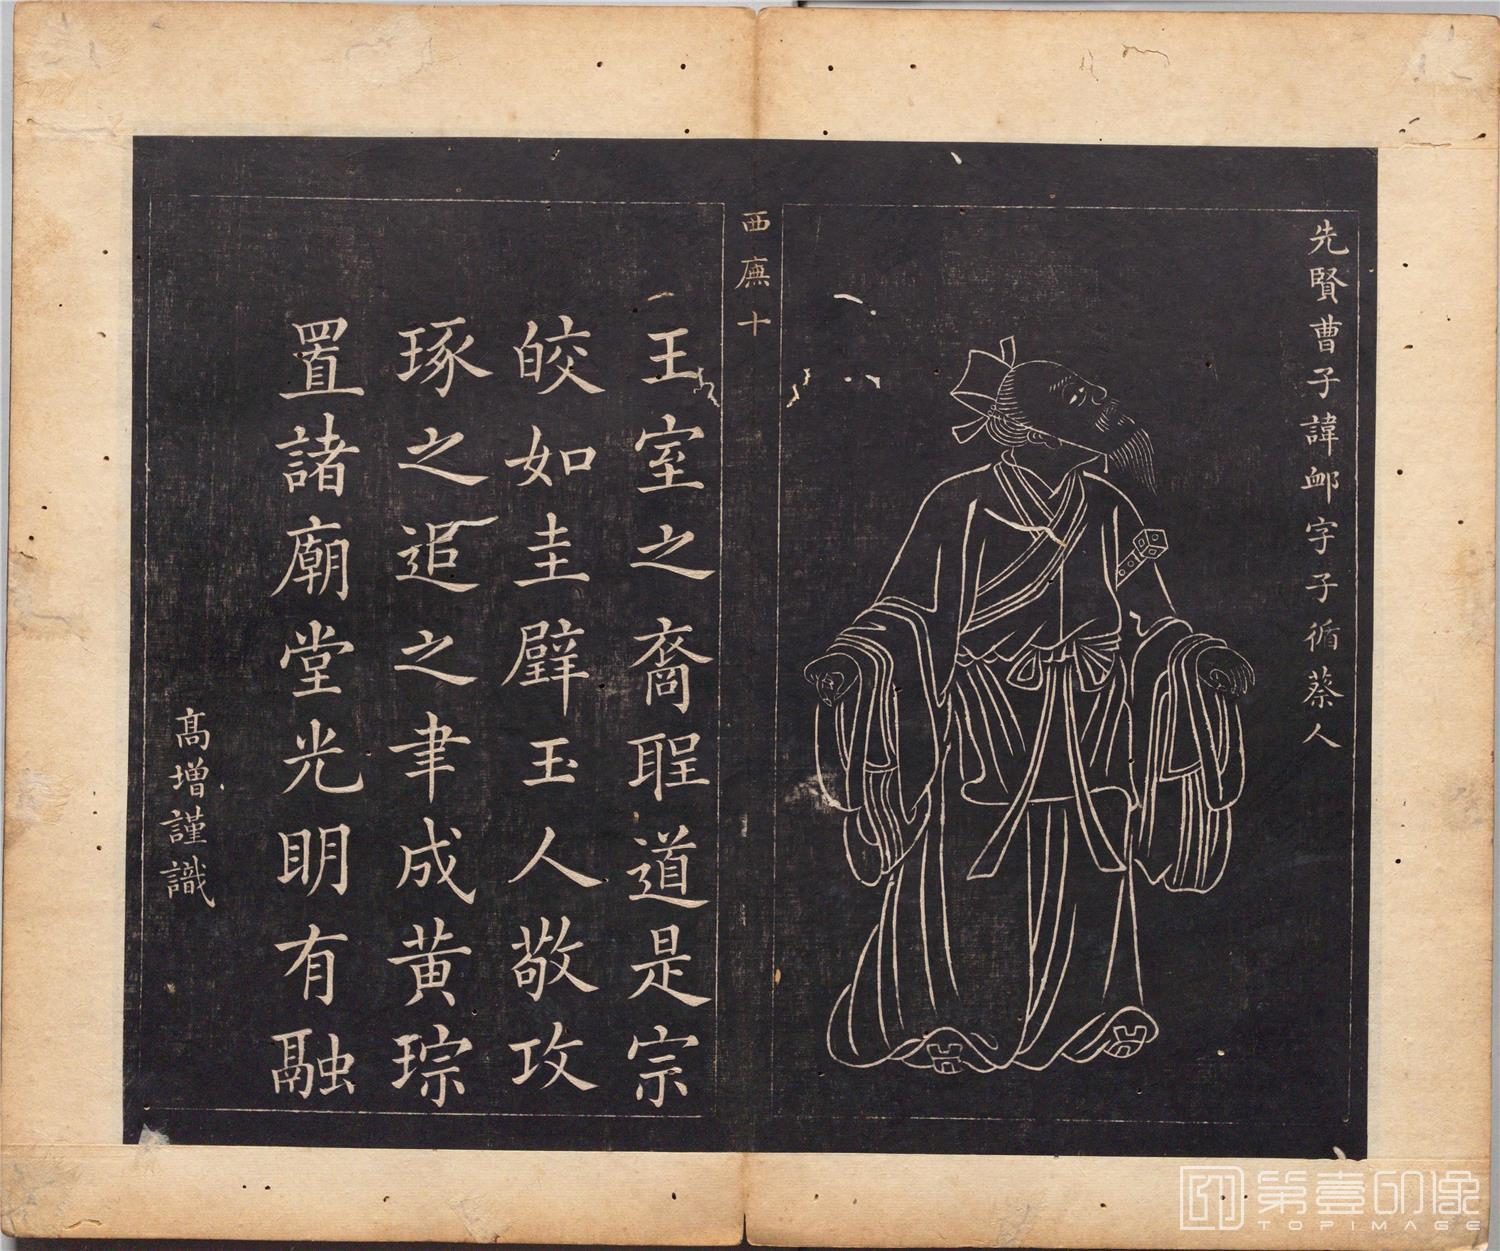 先賢曹子諱卹字子循蔡人
西廡十
王室之裔聖道是宗
皎如圭璧玉人敬攻
琢之追之聿成黄琮
置諸廟堂光明有融
髙增謹識
第壹印像
TOPIMAGE